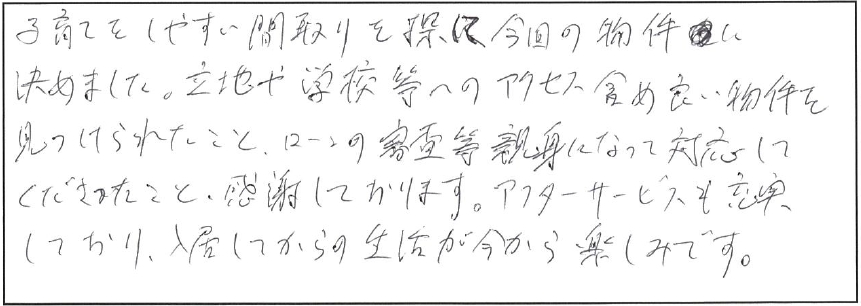 子育てをしやすい間取りを探して今回の物件に
決めました。立地や学校等へのアクセス含め良い物件を
見つけられたこと、ローンの審査等親身になって対応して
くださったこと、感謝しております。アフターサービスも充実
しており、入居してからの生活が今から楽しみです。